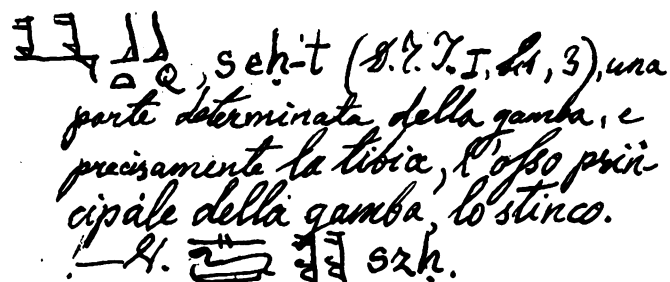 , seḥ-t (D.T.T. I, 21, 3), una
parte determinata della gamba, e
precisamente la tibia, l'osso prin-
cipale della gamba, lo stinco.
szḥ.